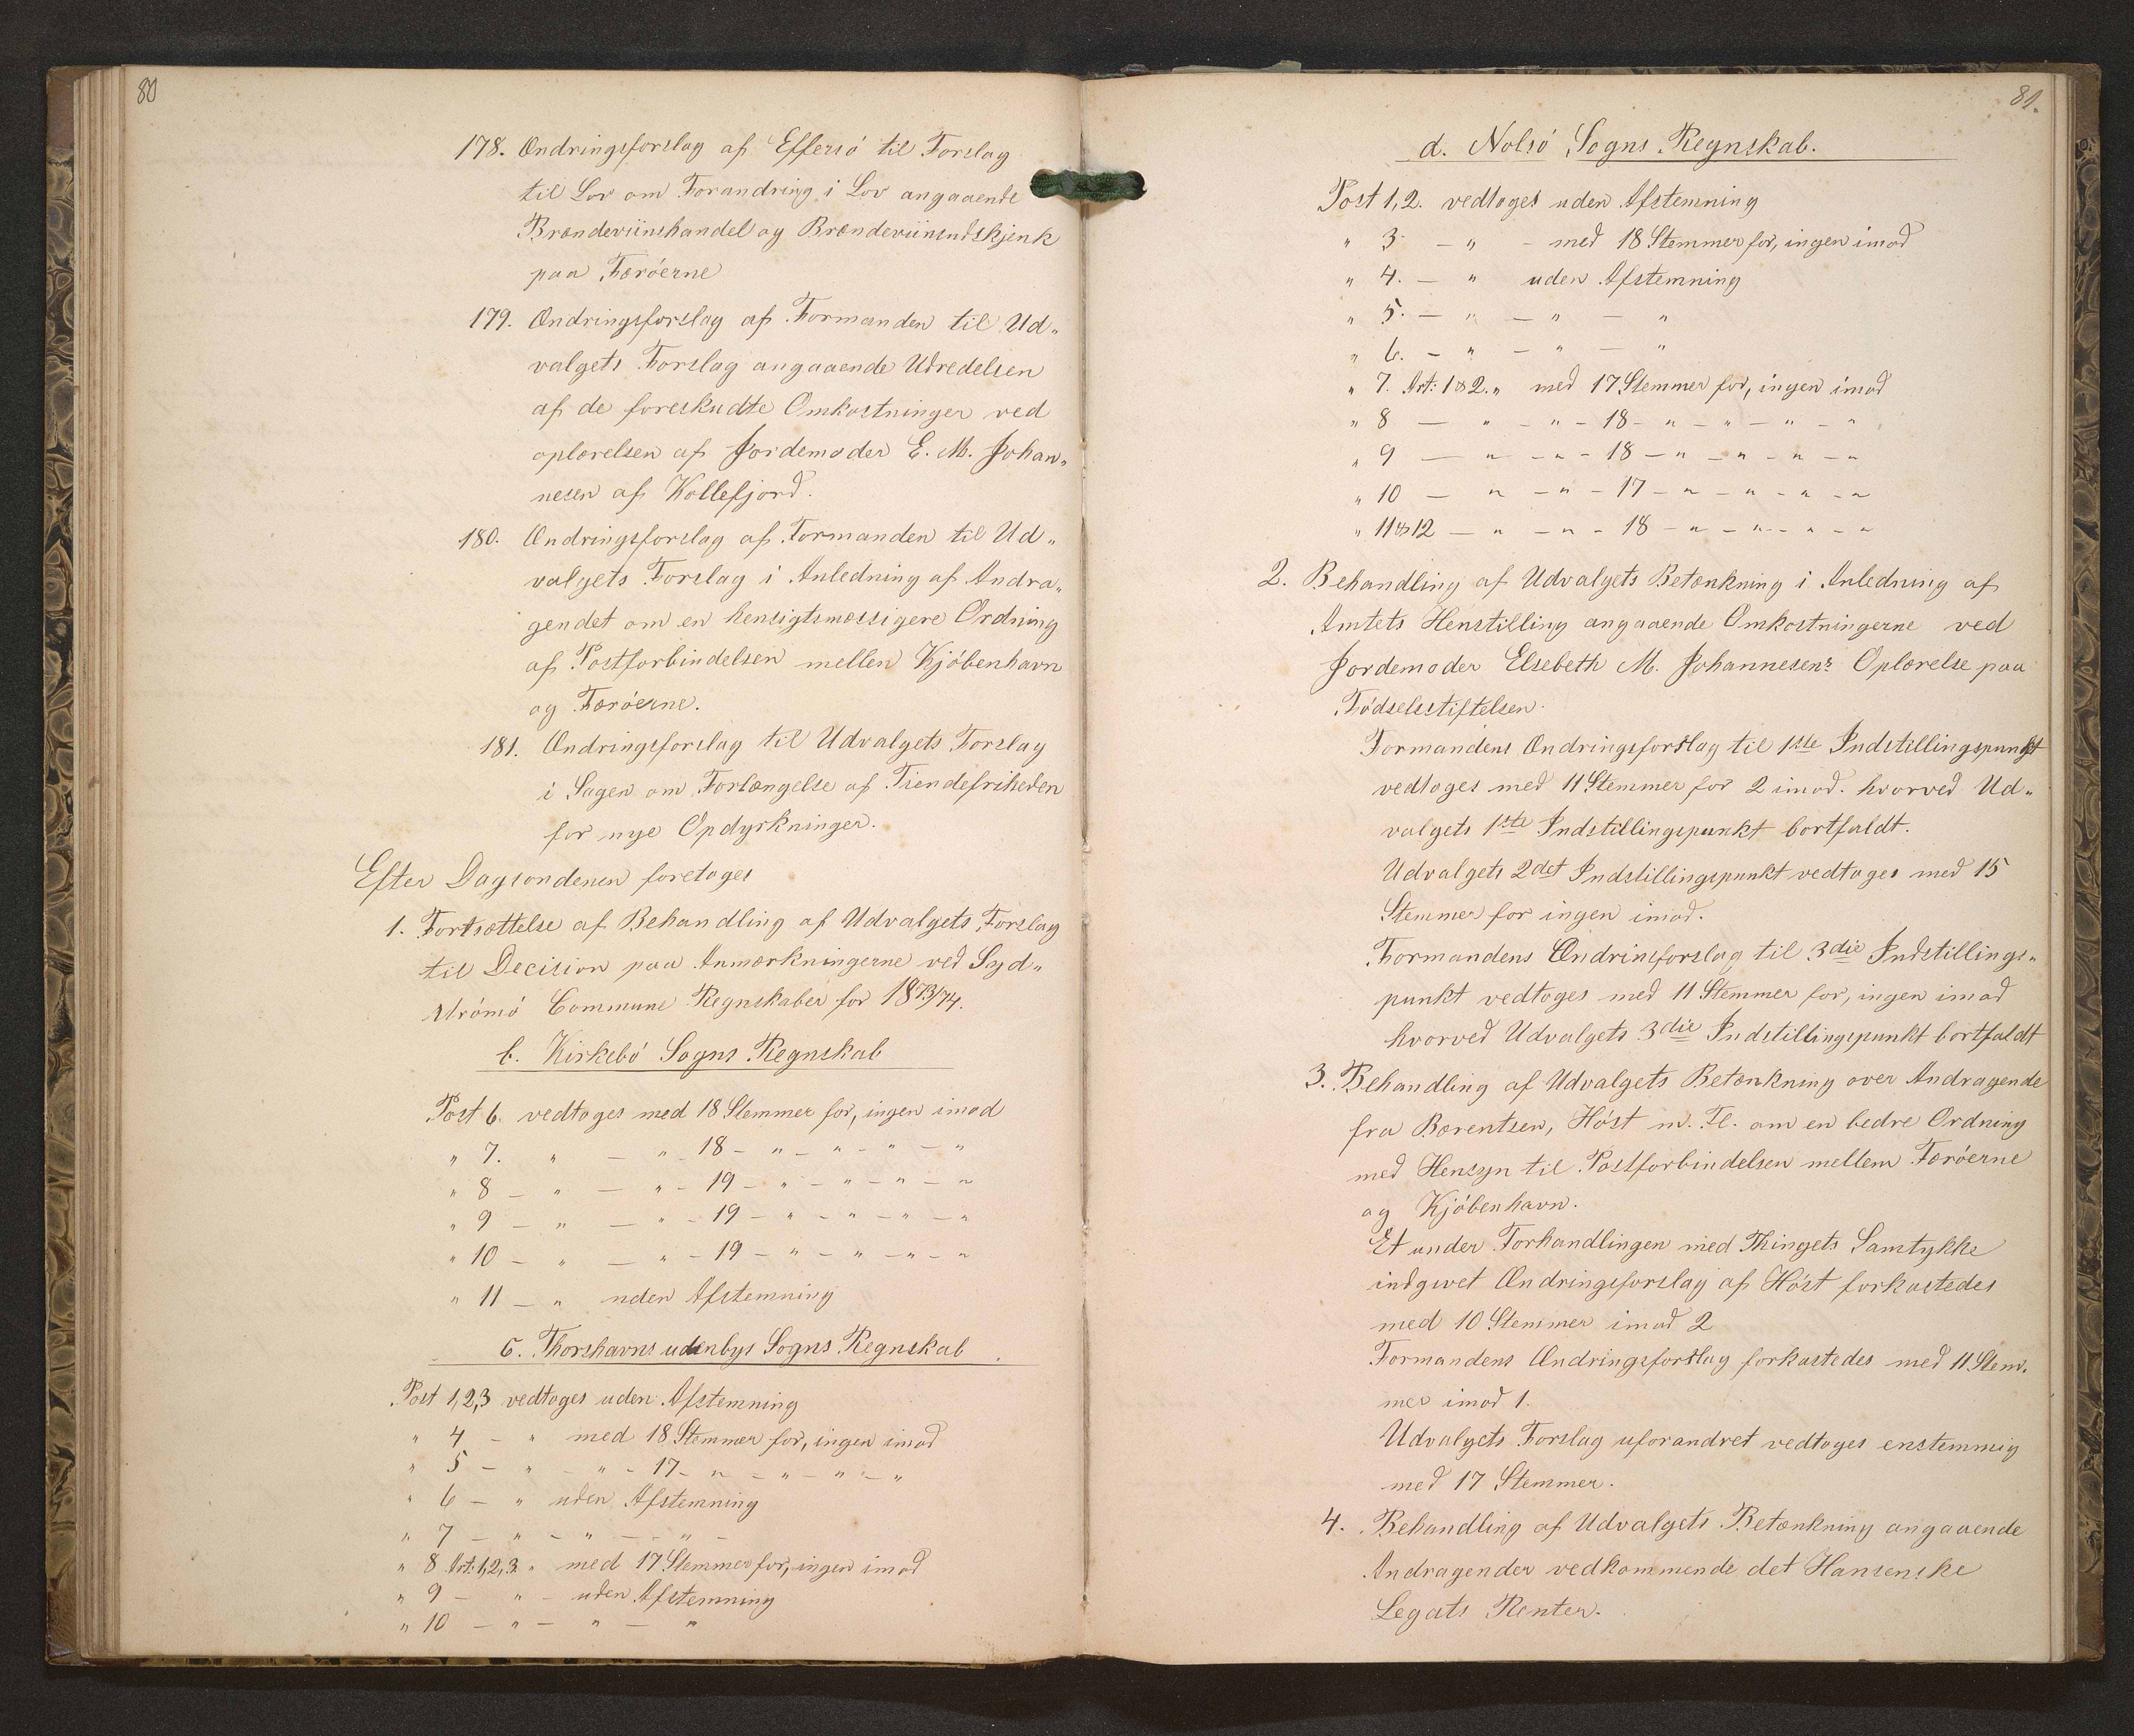 80
178. Ændringsforslag af Effersö til Forslag
til Lov om Forandring i Lov angaaende
Brændeviinshandel og Brændeviinsudskjenk
paa Færöerne
179. Ændringsforslag af Formanden til Ud„
valgets Forslag angaaende Udredelsen
af de foreskudte Omkostninger ved
oplærelsen af Jordemoder E. M. Johan„
nesen af Kollefjord.
180. Ændringsforslag af Formanden til Ud„
valgets Forslag i Anledning af Andra„
gendet om en hensigtsmæssigere Ordning
af Postforbindelsen mellem Kjöbenhavn
og Færöerne.
181. Ændringsforslag til Udvalgets Forslag
i Sagen om Forlængelse af Tiendefriheden
for nye Opdyrkninger.
Efter Dagsordenen foretoges
1. Fortsættelse af Behandling af Udvalgets Forslag
til Decision paa Anmærkningerne ved Syd„
strömö Commune Regnskaber for 1873/74.
b. Kirkebö Sogns Regnskab
Post 6. vedtoges med 18 Stemmer for, ingen imod
" 7. " — " - 18 - " - " - " - "
" 8 - " — " - 19 - " - " - " - "
" 9 - " — " - 19 - " - " - " - "
" 10 - " — " - 19 - " - " - " - "
" 11 - " uden Afstemning
c. Thorshavns udenbys Sogns Regnskab
Post 1,2,3 vedtoges uden Afstemning
" 4 - " med 18 Stemmer for, ingen imod
" 5 - " - " - 17 - " - " - " - "
" 6 - " uden Afstemning
" 7 - " - " - - " -
" 8 Art: 1,2,3. " med 17 Stemmer for, ingen imod
" 9 - " - uden Afstemning
" 10 - " - " - "
81.
d. Nolsö Sogns Regnskab.
Post 1,2. vedtoges uden Afstemning
" 3 - " - med 18 Stemmer for, ingen imod
" 4. - " uden Afstemning
" 5. - " - " - "
" 6. - " - " - "
" 7. Art: 1 & 2. " med 17 Stemmer for, ingen imod
" 8 — " - " - 18 - " - " - " - "
" 9 — " - " - 18 - " - " - " - "
" 10 — " - " - 17 - " - " - " - "
" 11 & 12 — " - " - 18 - " - " - " - "
2. Behandling af Udvalgets Betænkning i Anledning af
Amtets Henstilling angaaende Omkostningerne ved
Jordemoder Elsebeth M. Johannesens Oplærelse paa
Födselsstiftelsen.
Formandens Ændringsforslag til 1ste Indstillingspunkt
vedtoges med 11 Stemmer for 2 imod. hvorved Ud„
valgets 1ste Indstillingspunkt bortfaldt.
Udvalgets 2det Indstillingspunkt vedtoges med 15
Stemmer for ingen imod.
Formandens Ændrinsforslag til 3die Indstillings„
punkt vedtoges med 11 Stemmer for, ingen imod
hvorved Udvalgets 3die Indstillingspunkt bortfaldt
3. Behandling af Udvalgets Betænkning over Andragende
fra Bærentsen, Höst m. Fl. om en bedre Ordning
med Hensyn til Postforbindelsen mellem Færöerne
og Kjöbenhavn.
Et under Forhandlingen med Thingets Samtykke
indgivet Ændringsforslag af Höst forkastedes
med 10 Stemmer imod 2
Formandens Ændringsforslag forkastedes med 11 Stem„
mer imod 1.
Udvalgets Forslag uforandret vedtoges enstemmig
med 17 Stemmer.
4. Behandling af Udvalgets Betænkning angaaende
Andragender vedkommende det Hansenske
Legats Renter.